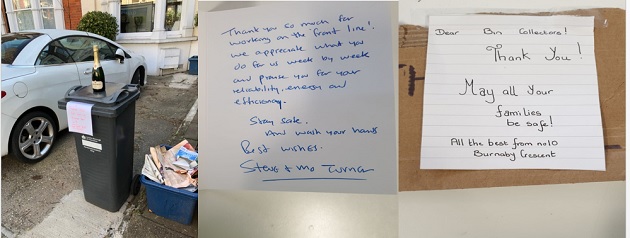 Thank you so much for
working on the 'front line'!
we appreciate what you
do for us week by week
and praise you for your
reliability, energy and
efficiency.
Stay safe.
And wash your hands
Best wishes.
Steve + Mo Turner
Dear Bin Collectors!
Thank You!
May all your
families
be safe!
All the best from no10
Burnaby Crescent